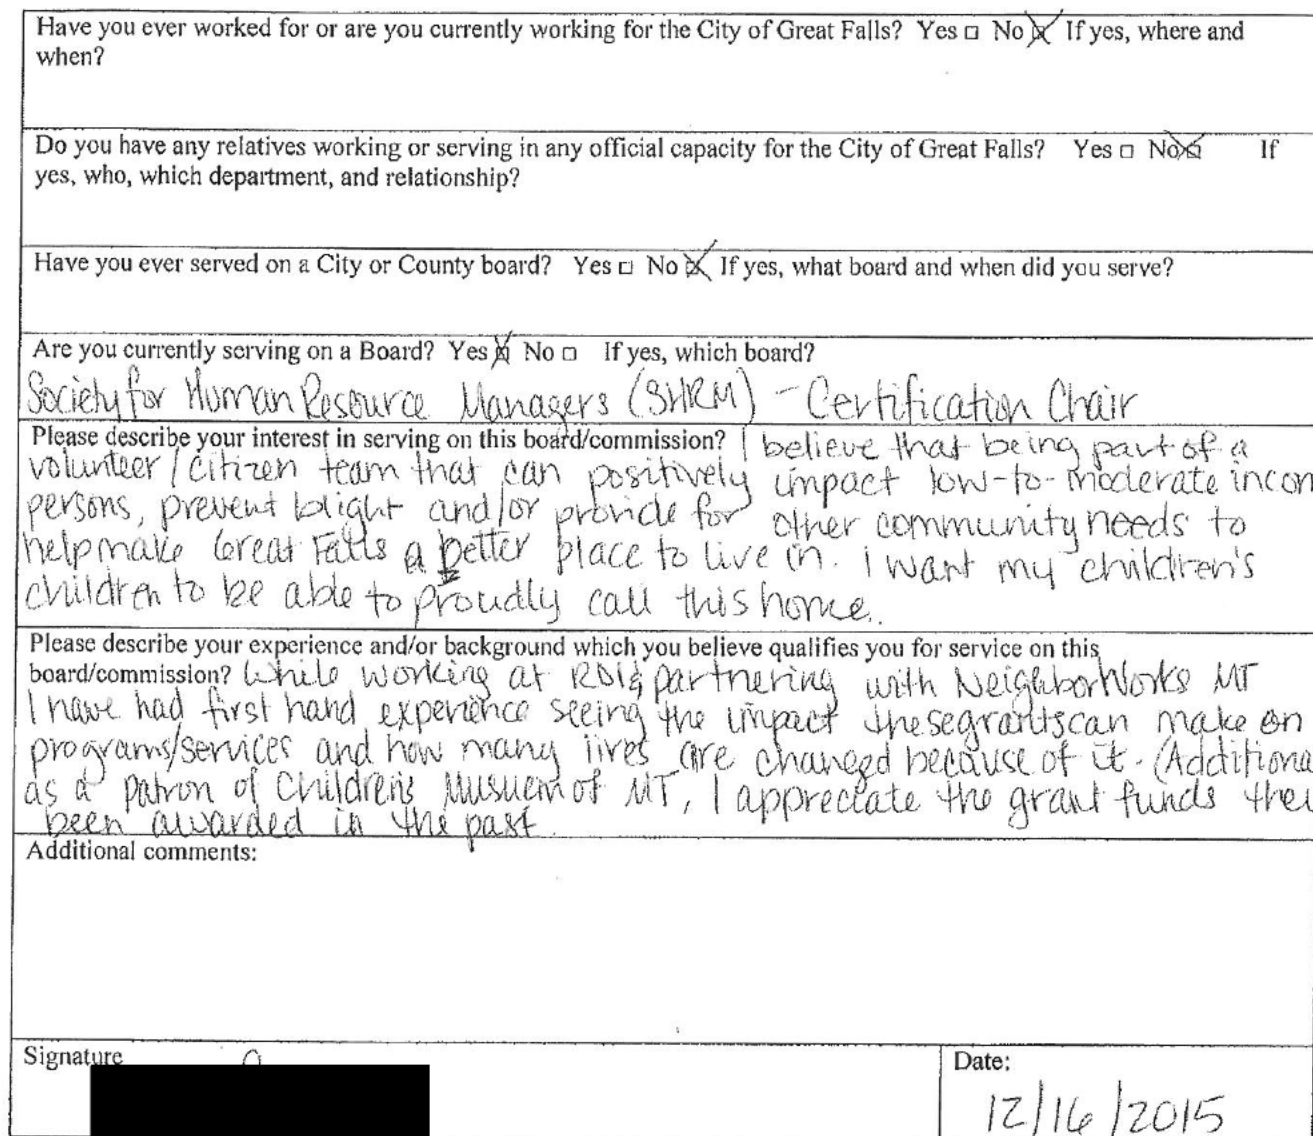 Have you ever worked for or are you currently working for the City of Great Falls? Yes □ No ☒ If yes, where and
when?
Do you have any relatives working or serving in any official capacity for the City of Great Falls? Yes □ No ☒ If
yes, who, which department, and relationship?
Have you ever served on a City or County board? Yes □ No ☒ If yes, what board and when did you serve?
Are you currently serving on a Board? Yes ☒ No □ If yes, which board?
Society for Human Resource Managers (SHRM) - Certification Chair
Please describe your interest in serving on this board/commission? I believe that being part of a
volunteer/citizen team that can positively impact low-to-moderate incom
persons, prevent blight and/or provide for other community needs to
help make Great Falls a better place to live in. I want my children's
children to be able to proudly call this home.
Please describe your experience and/or background which you believe qualifies you for service on this
board/commission? While working at RDI & partnering with NeighborWorks MT
I have had first hand experience seeing the impact these grants can make on
programs/services and how many lives are changed because of it. (Additiona
as a patron of Children's Musuem of MT, I appreciate the grant funds they
been awarded in the past.
Additional comments:
Signature
Date:
12/16/2015